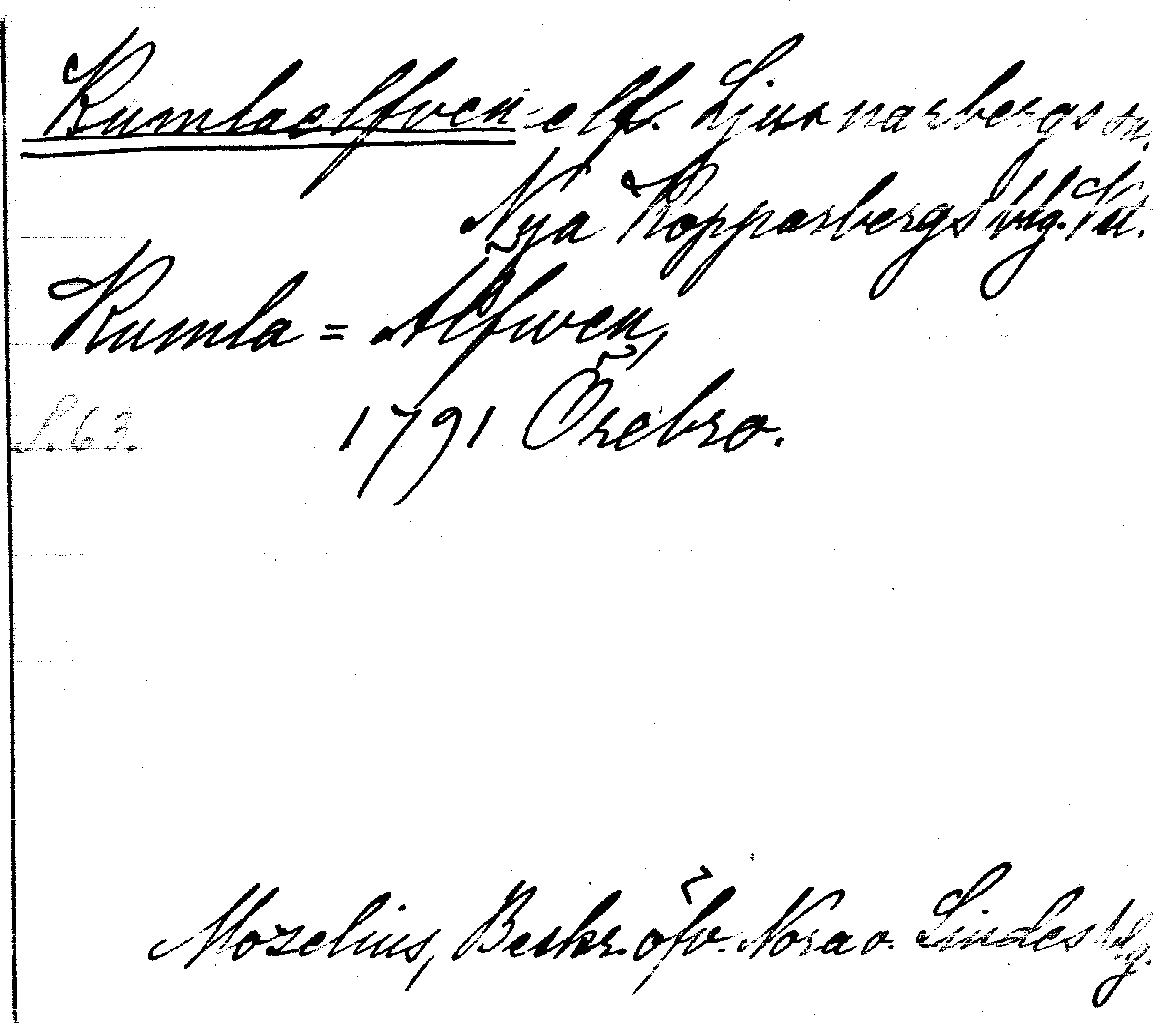 Kumlaelfven elf. Ljusnarbergs sn.
Nya Kopparbergs blg.
Kumla = Älfwen,
S. 63. 1791 Örebro.
Moselius, Beskr. öfv. Nora o. Lindes blg.